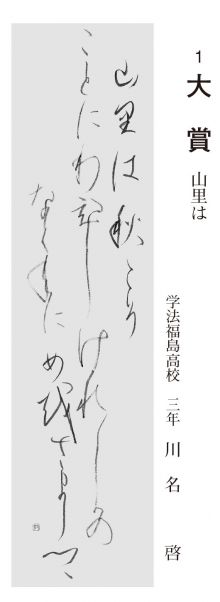 1 大賞 山里は
学法福島高校 三年 川名 啓
山里は秋こそ
ことにわびし けれしかの
なくねに め越さましつゝ